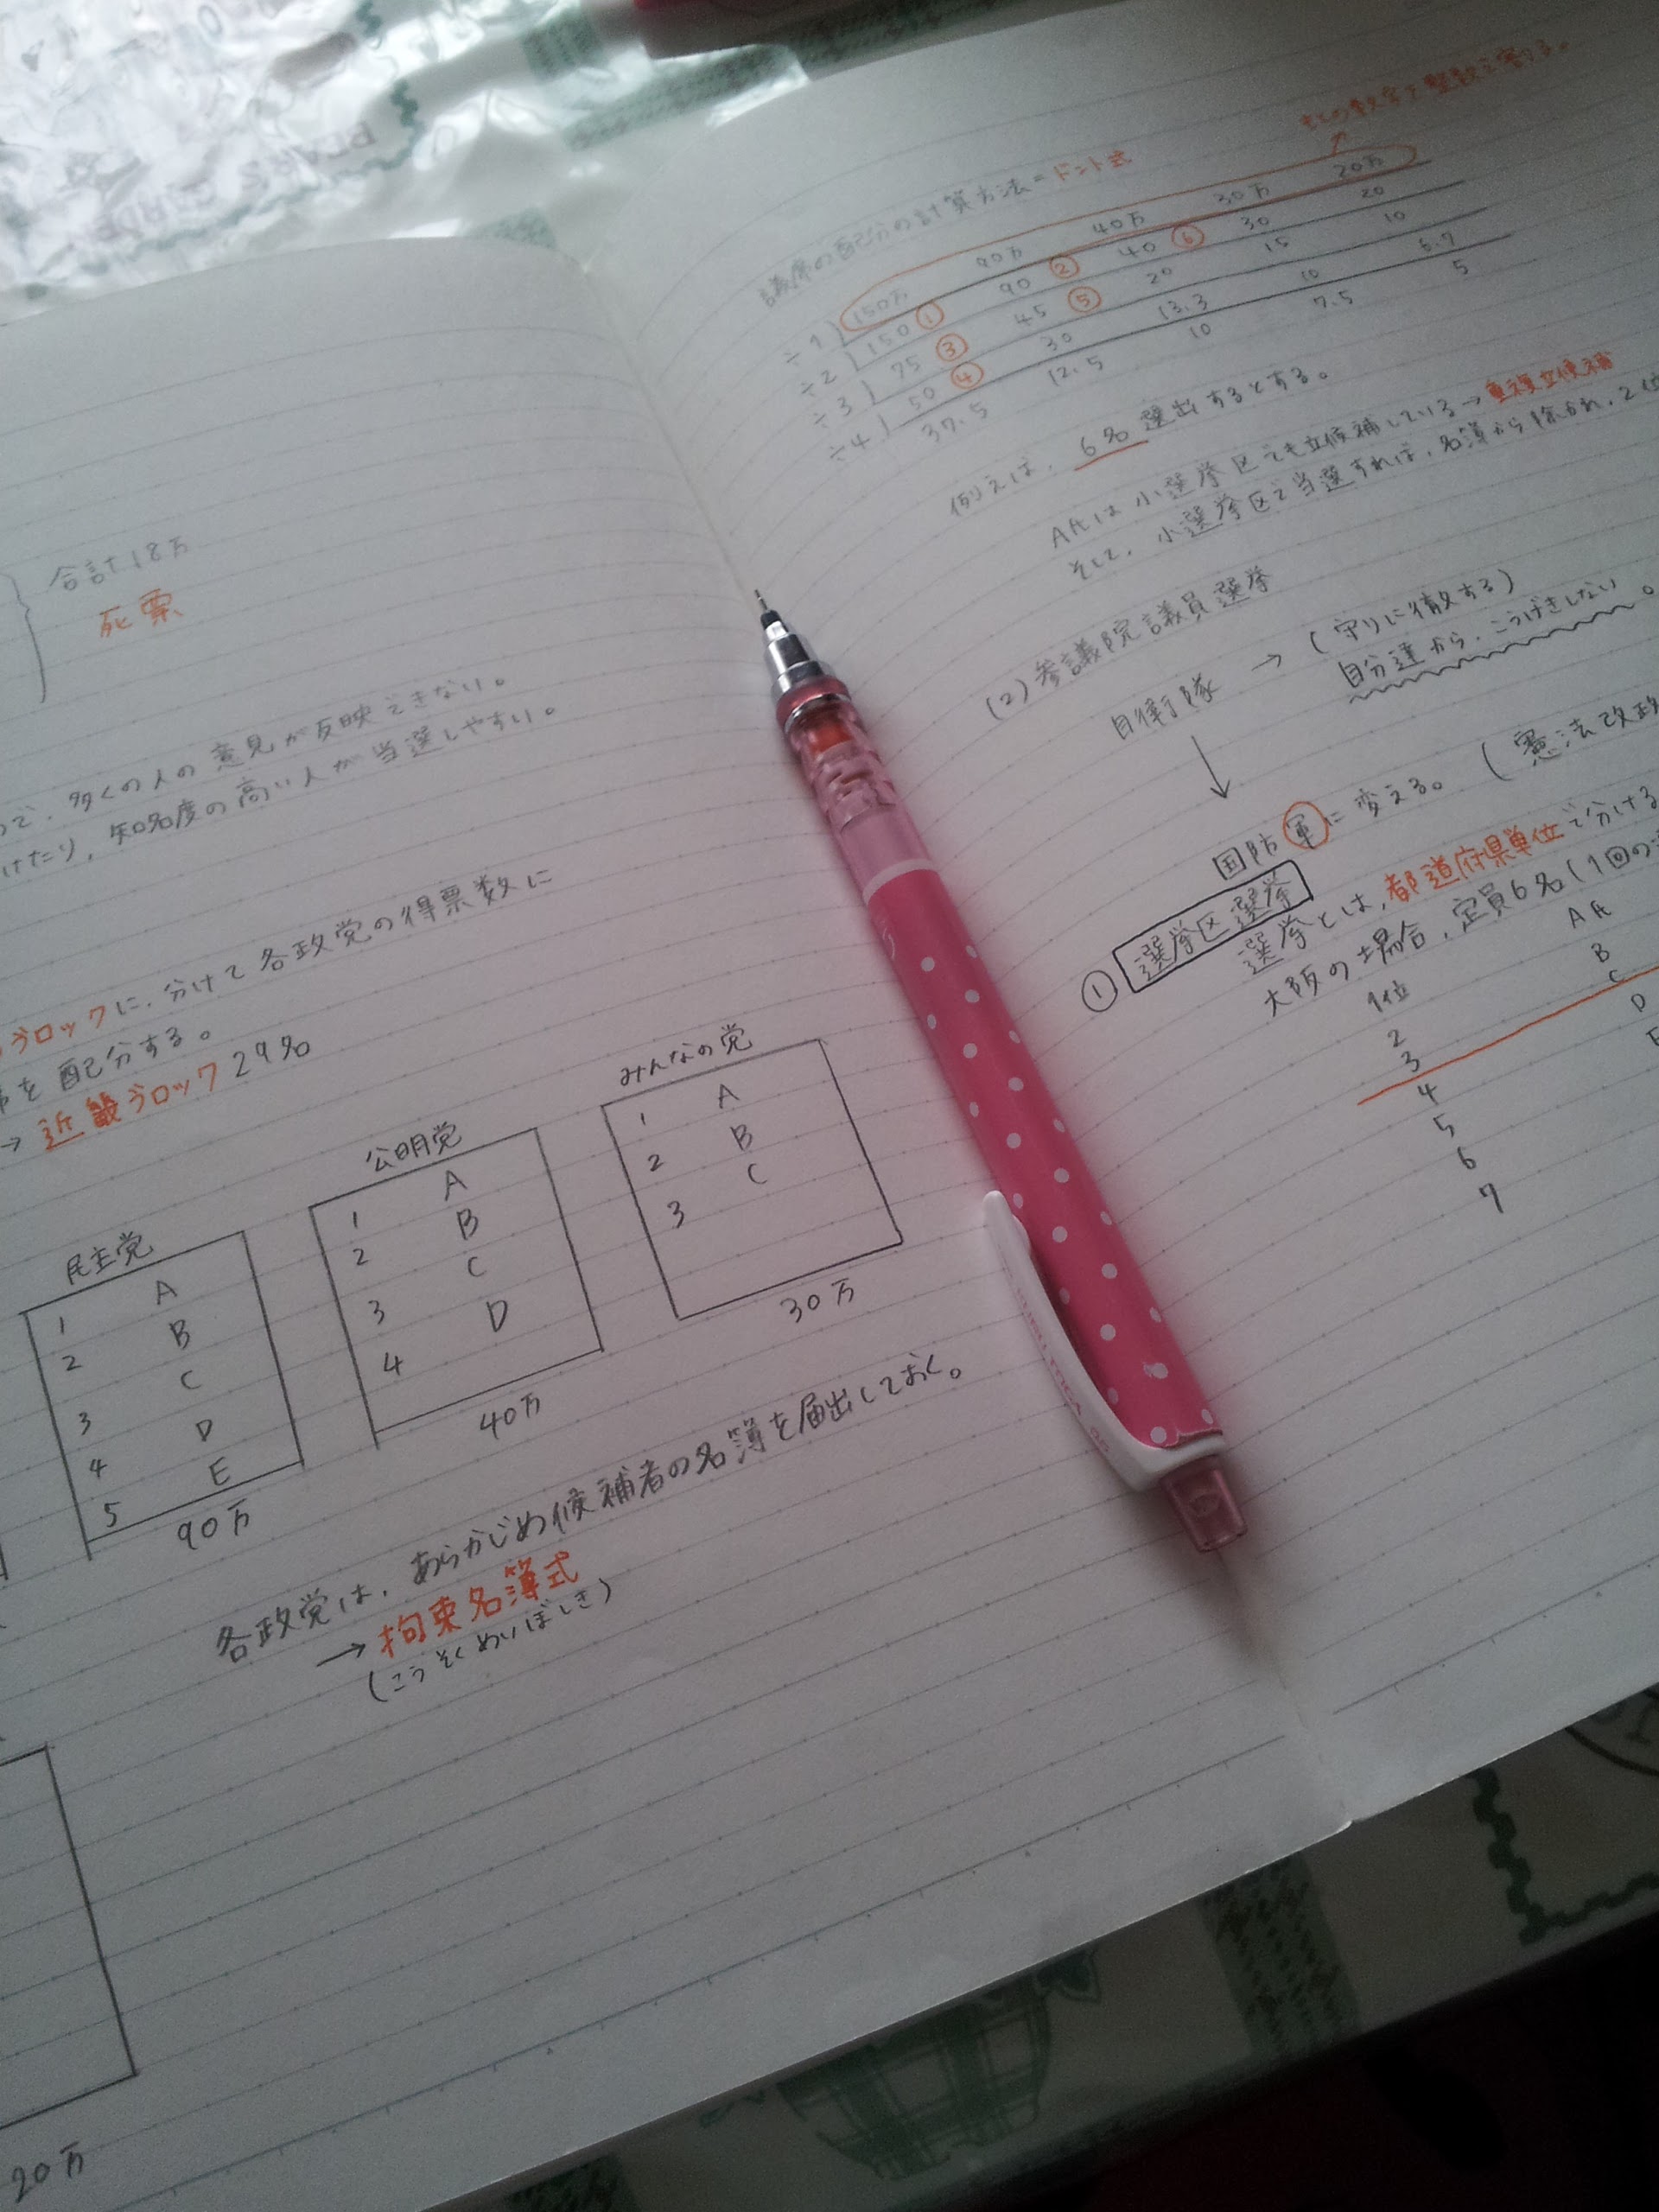 合計18万
死票
で、多くの人の意見が反映できない。
けたり、知名度の高い人が当選しやすい。
ブロックに、分けて各政党の得票数に
を配分する。
→ 近畿ブロック 29名
民主党
1 A
2 B
C
3 D
4 E
5
90万
公明党
1 A
2 B
C
3 D
4
40万
みんなの党
1 A
2 B
C
3
30万
各政党は、あらかじめ候補者の名簿を届出しておく。
→ 拘束名簿式
(こうそくめいぼしき)
20万
もとの数字を整数で割る。
議席の配分の計算方法=ドント式
150万 90万 40万 30万 20万
÷1 150 ① 90 ② 40 ⑥ 30 20
÷2 75 ③ 45 ⑤ 20 15 10
÷3 50 ④ 30 13.3 10 6.7
÷4 37.5 12.5 10 7.5 5
例えば、6名選出するとする。
AAは小選挙区でも立候補している→重複立候補
そして、小選挙区で当選すれば、名簿から除かれ、2位
(2)参議院議員選挙
自衛隊 → (守りに徹する)
自分達から、こうげきしない。
↓
国防軍に変える。(憲法改政
① 選挙区選挙
選挙とは、都道府県単位で分ける
大阪の場合、定員6名(1回の
1位 AA
2 B
3 C
4 D
5
6
7